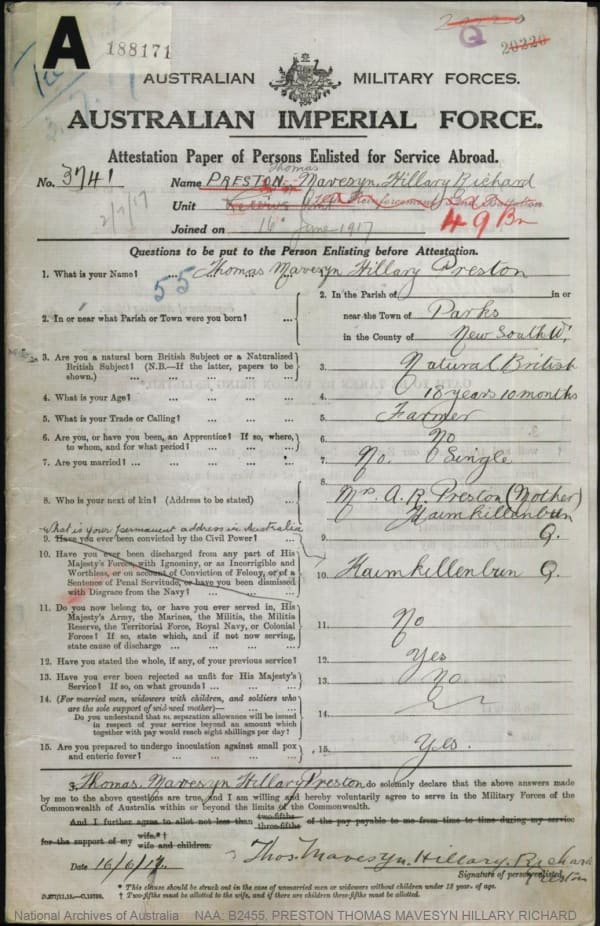 A 188171
20220
Q 20220
AUSTRALIAN MILITARY FORCES.
AUSTRALIAN IMPERIAL FORCE.
Attestation Paper of Persons Enlisted for Service Abroad.
Thomas
No. 3741 Name PRESTON, Mavesyn, Hillary Richard
Unit 2nd Battalion
49 Bn
2/7/17 Joined on 16 June 1917
Questions to be put to the Person Enlisting before Attestation.
1. What is your Name? ... ... ... Thomas Mavesyn Hillary Preston
55
2. In or near what Parish or Town were you born? ...
2. In the Parish of in or
near the Town of Parks
in the County of New South W.
3. Are you a natural born British Subject or a Naturalized
British Subject? (N.B.—If the latter, papers to be
shown.) ... ... ... ... ...
3. Natural British
4. What is your Age? ... ... ... ... 4. 18 years 10 months
5. What is your Trade or Calling? ... ... ... 5. Farmer
6. Are you, or have you been, an Apprentice? If so, where,
to whom, and for what period? ... ... ...
6. No
7. Are you married? ... ... ... ... 7. No. Single
8. Who is your next of kin? (Address to be stated) ...
8. Mrs. A. R. Preston (Mother)
Kaimkillenbun
Q.
what is your permanent address in Australia
9. Have you ever been convicted by the Civil Power? ... 9.
10. Have you ever been discharged from any part of His
Majesty's Forces, with Ignominy, or as Incorrigible and
Worthless, or on account of Conviction of Felony, or of a
Sentence of Penal Servitude, or have you been dismissed
with Disgrace from the Navy? ... ... ...
10. Kaimkillenbun Q.
11. Do you now belong to, or have you ever served in, His
Majesty's Army, the Marines, the Militia, the Militia
Reserve, the Territorial Force, Royal Navy, or Colonial
Forces? If so, state which, and if not now serving,
state cause of discharge ... ... ... ...
11. No
12. Have you stated the whole, if any, of your previous service? 12. Yes
13. Have you ever been rejected as unfit for His Majesty's
Service? If so, on what grounds? ... ... ...
13. No
14. (For married men, widowers with children, and soldiers who
are the sole support of widowed mother)—
Do you understand that no separation allowance will be issued
in respect of your service beyond an amount which
together with pay would reach eight shillings per day?
14.
15. Are you prepared to undergo inoculation against small pox
and enteric fever? ... ... ... ...
15. Yes.
I, Thomas Mavesyn Hillary Preston do solemnly declare that the above answers made
by me to the above questions are true, and I am willing and hereby voluntarily agree to serve in the Military Forces of the
Commonwealth of Australia within or beyond the limits of the Commonwealth.
And I further agree to allot not less than two-fifths three-fifths of the pay payable to me from time to time during my service
for the support of my wife.*† wife and children.
Date 16/6/17. Thos. Mavesyn. Hillary. Richard
Preston
Signature of person enlisted.
* This clause should be struck out in the case of unmarried men or widowers without children under 18 year. of age.
† Two-fifths must be allotted to the wife, and if there are children three-fifths must be allotted.
National Archives of Australia NAA: B2455, PRESTON THOMAS MAVESYN HILLARY RICHARD